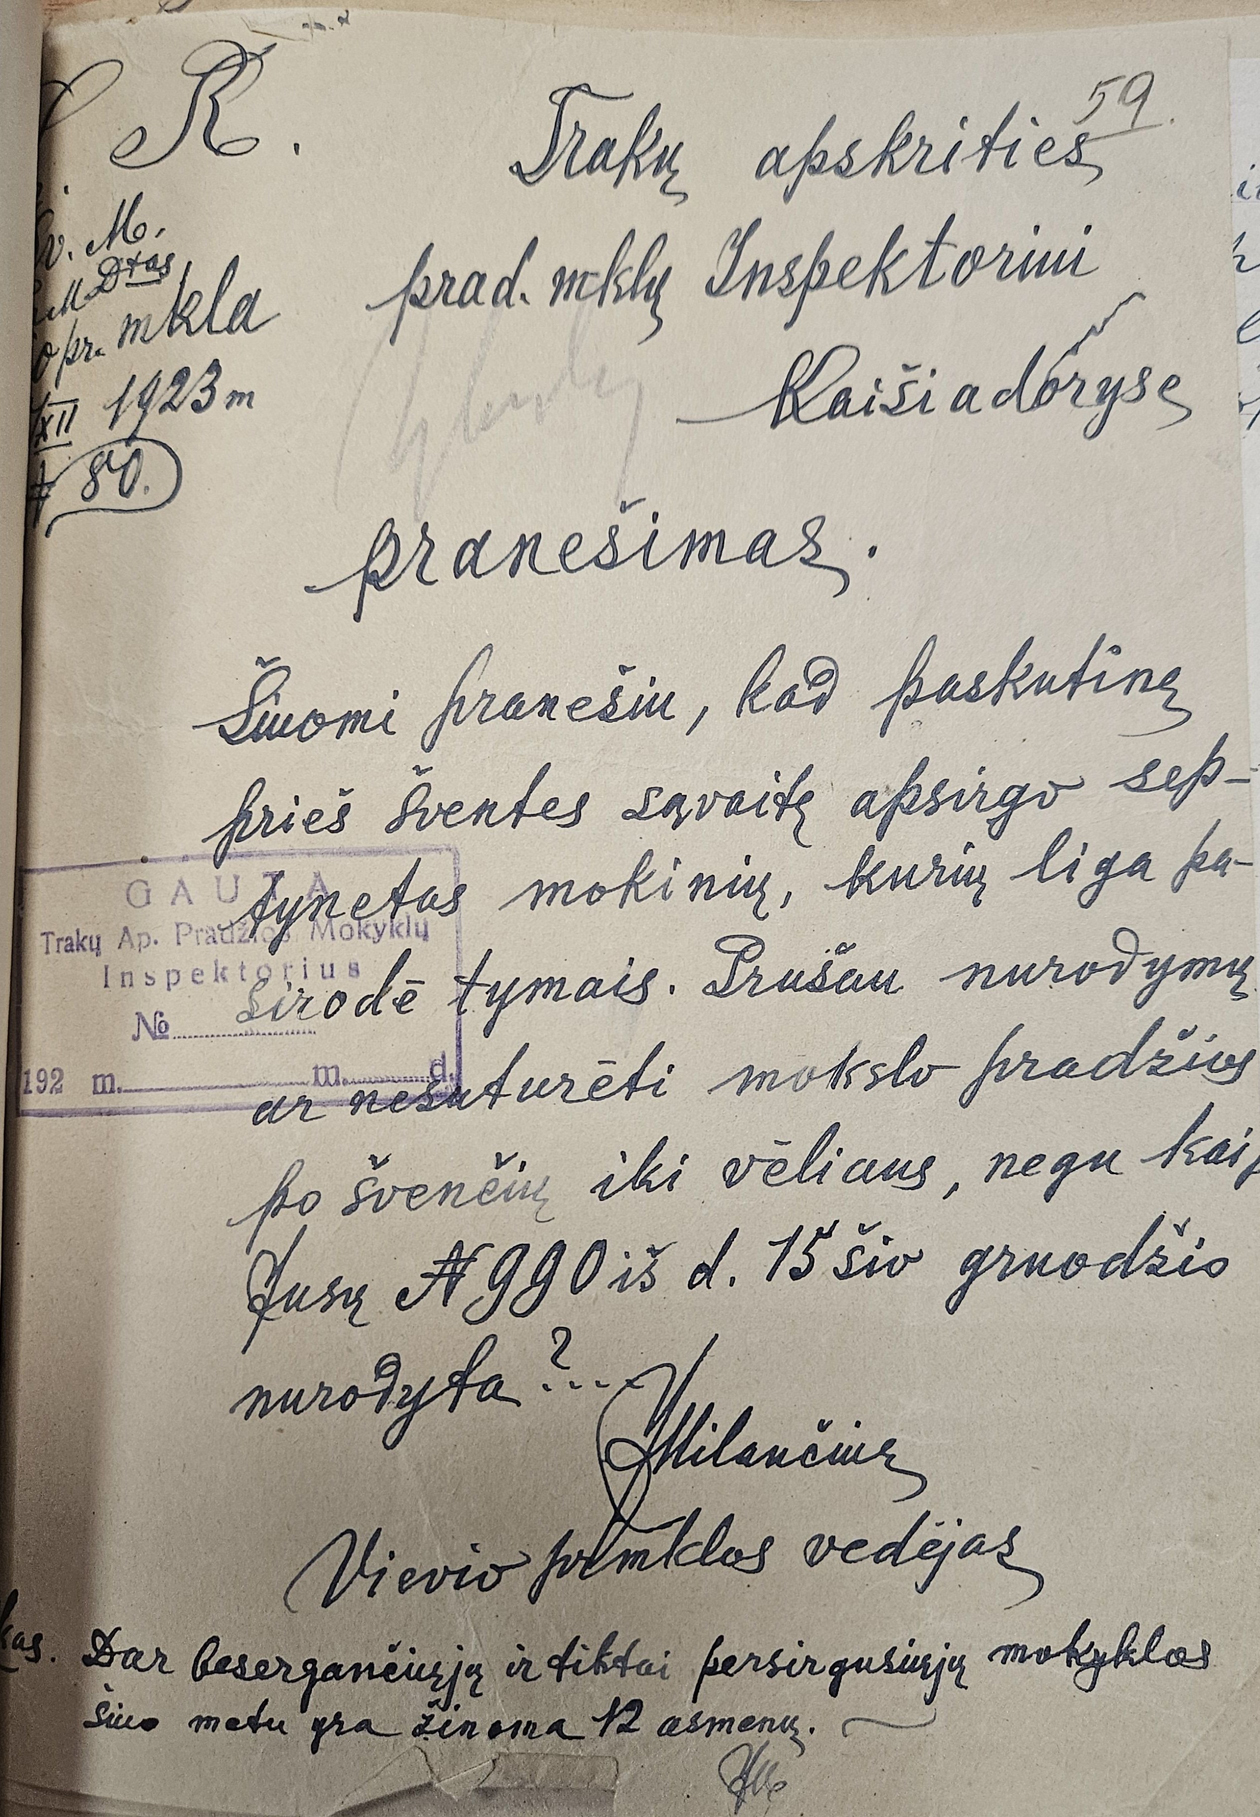 R.
59.
Trakų apskrities
Šv. M.
M Dtas
prad. mklų Inspektoriui
pr. mkla
Kaišiadoryse
XII 1923 m
№ 80.
pranešimas.
Šiuomi pranešiu, kad paskutinę
prieš šventes sąvaitę apsirgo sep-
tynetas mokinių, kurių liga pa-
sirodė tymais. Prašau nurodymų
GAUTA
Trakų Ap. Pradžios Mokyklų
Inspektorius
№
192 m. m. d.
ar nesuturėti mokslo pradžios
po švenčių iki vėliaus, negu kaip
Jusų № 990 iš d. 15 šio gruodžio
nurodyta?...
Milančius
Vievio pr mklos vedėjas
kas. Dar besergančiųjų ir tiktai persirgusiųjų mokyklos
šiuo metu yra žinoma 12 asmenų.